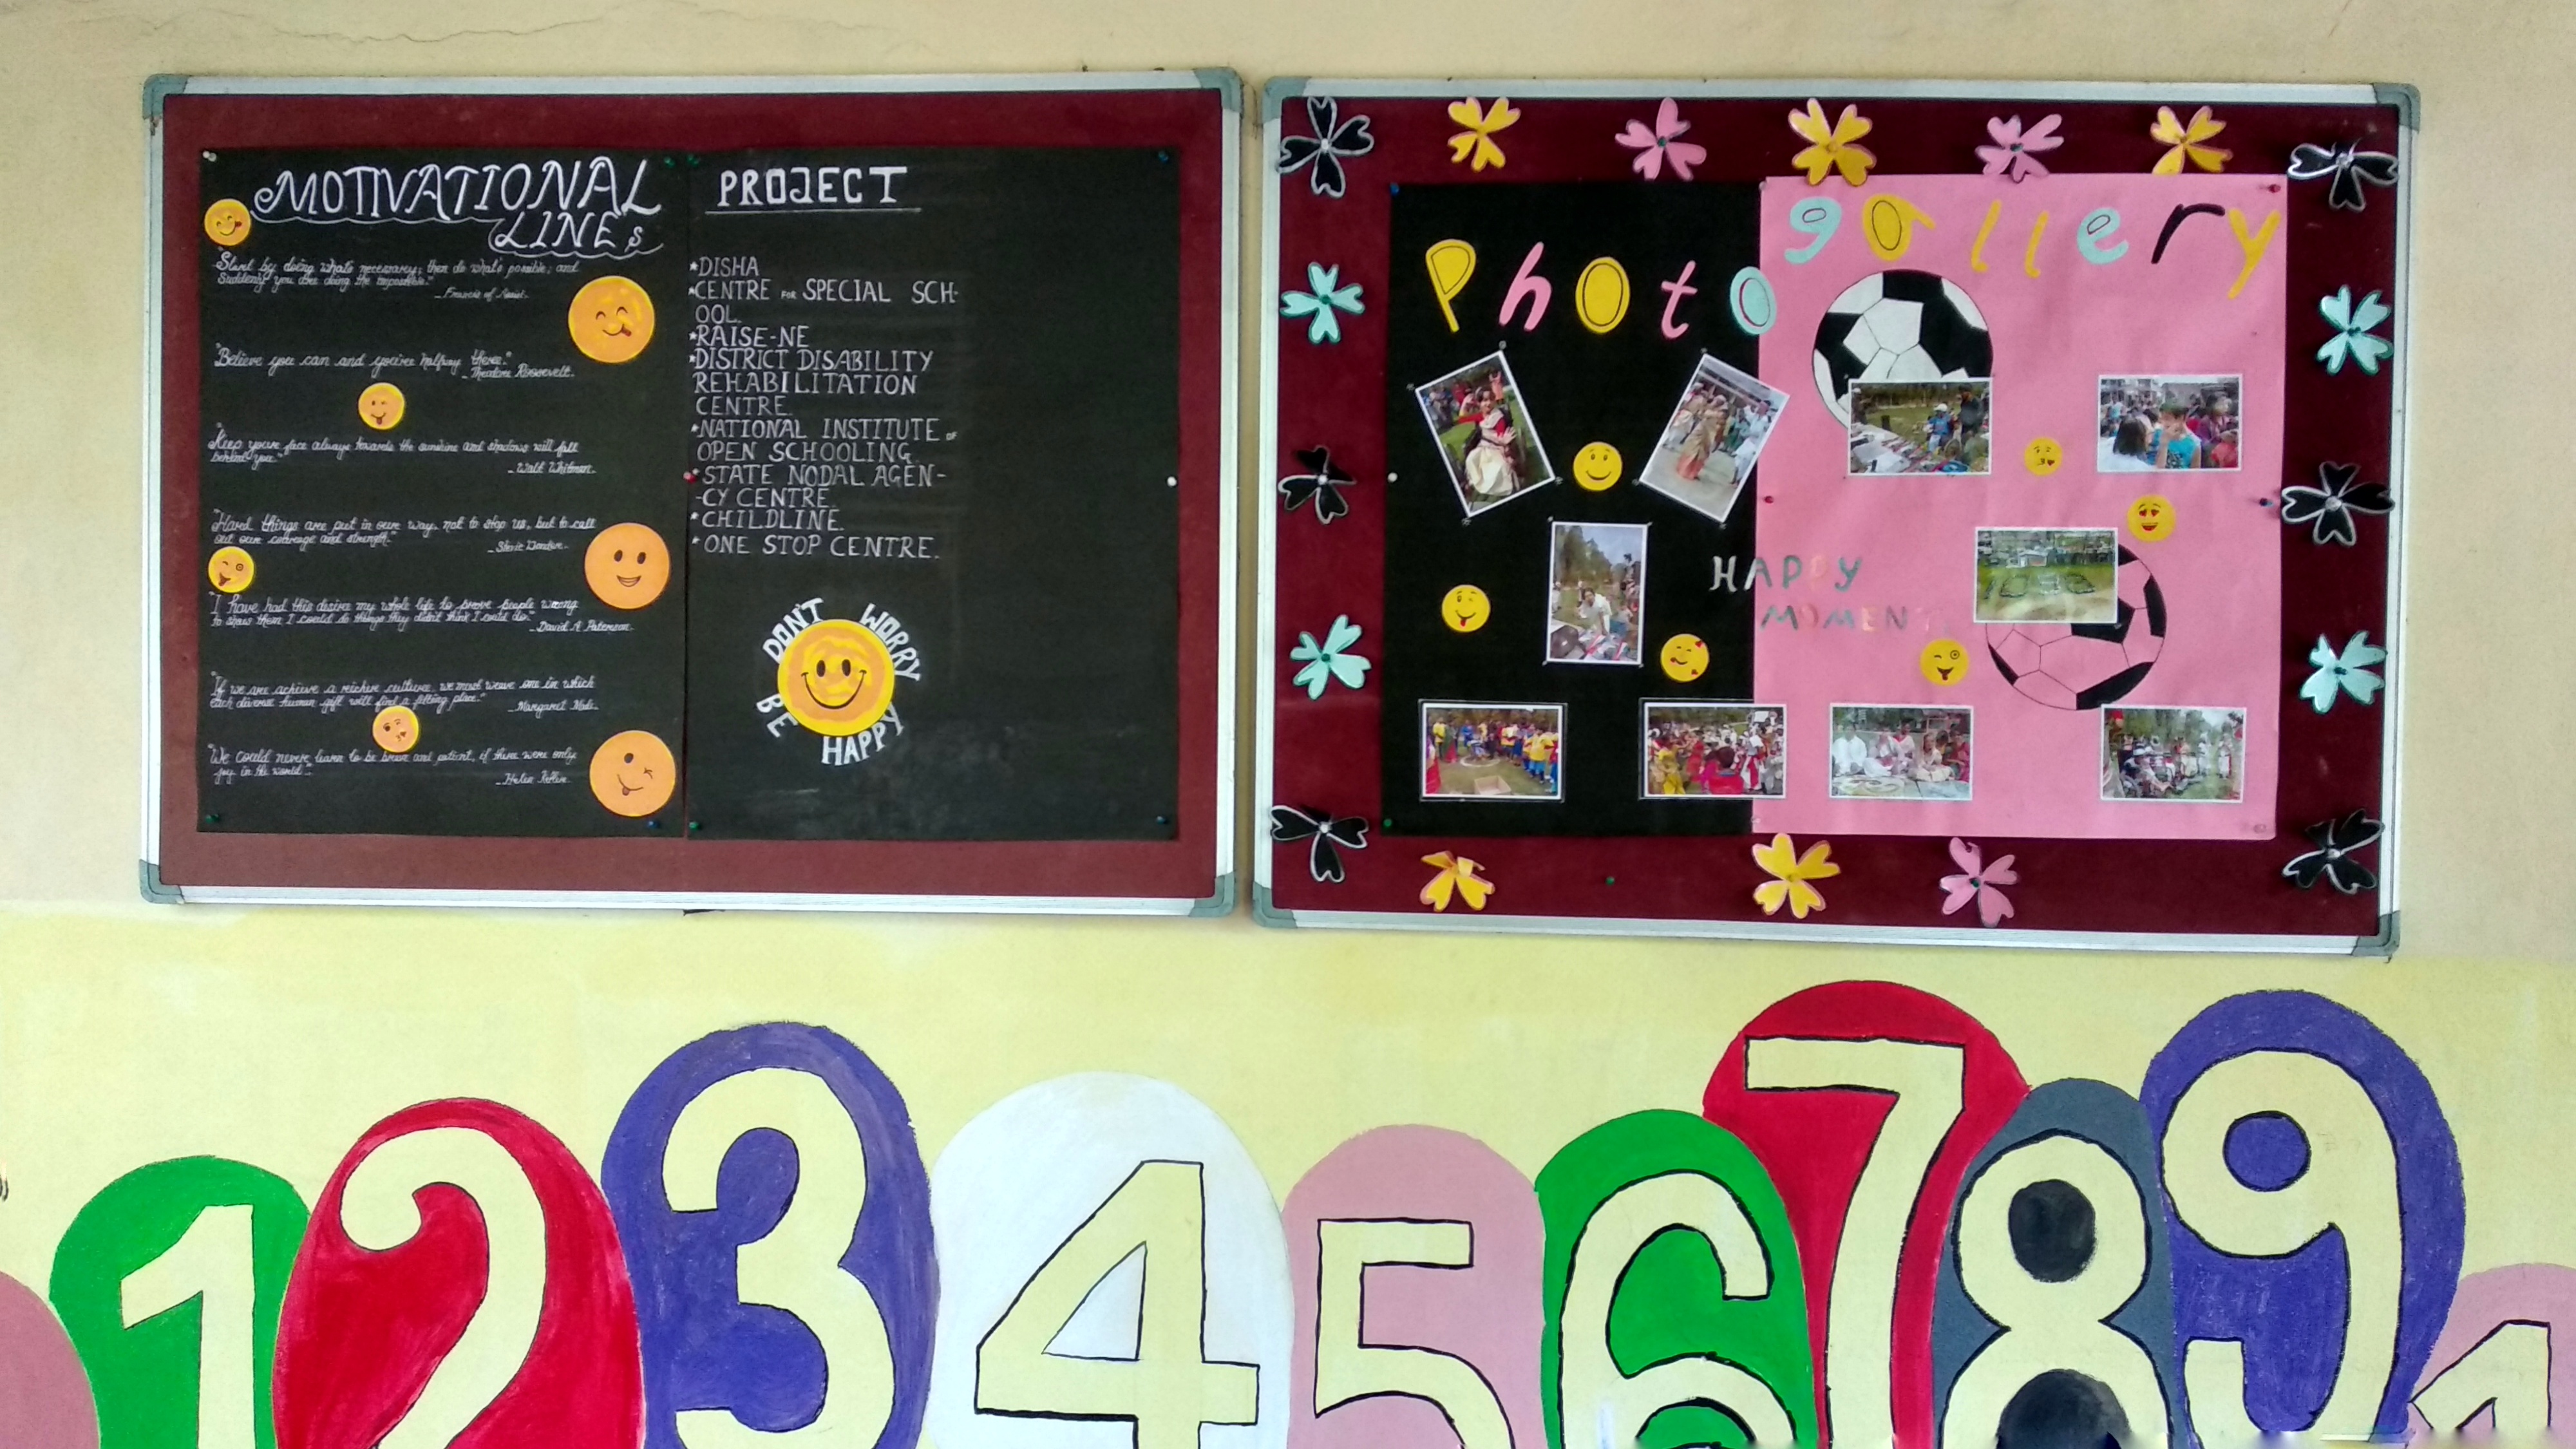 MOTIVATIONAL
LINES
"Start by doing what's necessary; then do what's possible; and
Suddenly you are doing the impossible."
_ Francis of Assisi.
"Believe you can and you're halfway there."
_ Theodore Roosevelt.
"Keep your face always towards the sunshine and shadows will fall
behind you."
_ Walt Whitman.
"Hard things are put in our way, not to stop us, but to call
out our courage and strength."
"I have had this desire my whole life to prove people wrong
to show them I could do things they didn't think I could do."
_ David A Paterson.
"If we are achieve a richer culture, we must weave one in which
each diverse human gift will find a fitting place."
_ Margaret
"We could never learn to be brave and patient, if there were only
joy in the world".
_ Helen Keller.
PROJECT
*DISHA
*CENTRE FOR SPECIAL SCH-
OOL.
*RAISE-NE
*DISTRICT DISABILITY
REHABILITATION
CENTRE.
*NATIONAL INSTITUTE OF
OPEN SCHOOLING.
*STATE NODAL AGEN-
-CY CENTRE.
*CHILDLINE.
*ONE STOP CENTRE.
DON'T WORRY
BE HAPPY
Photo gallery
HAPPY
MOMENT
1 2 3 4 5 6 7 8 9 1